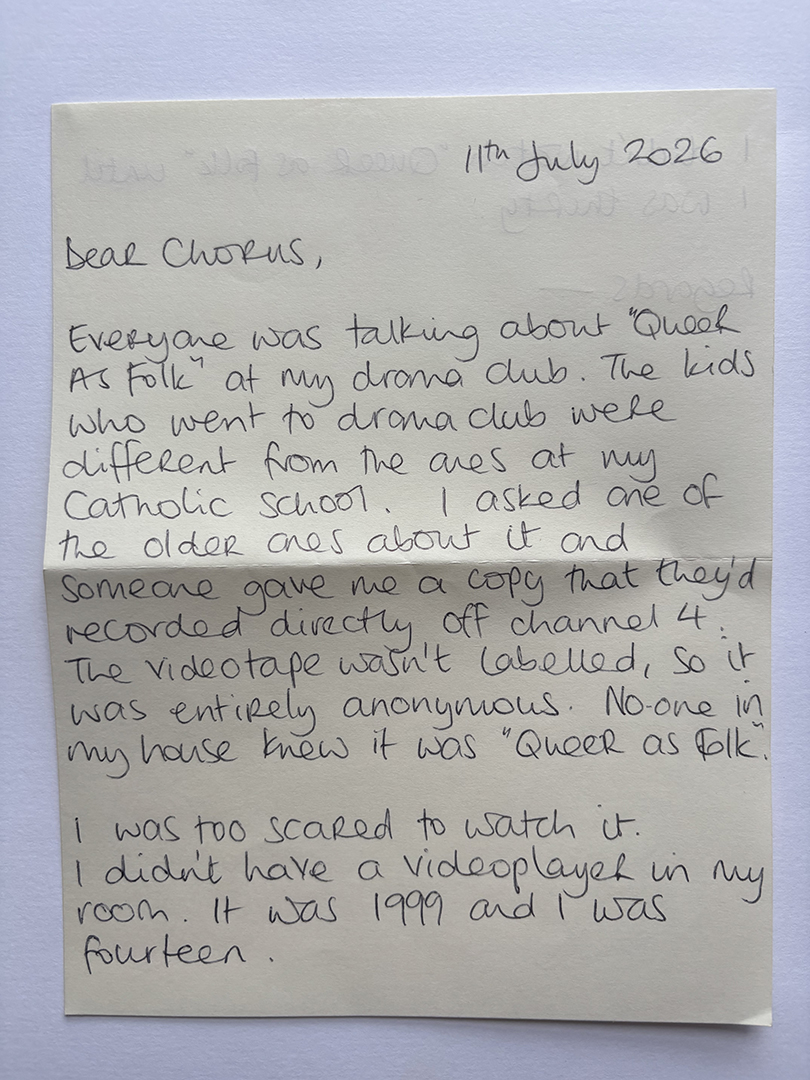 11th July 2026
Dear Chorus,
Everyone was talking about "Queer
As Folk" at my drama club. The kids
who went to drama club were
different from the ones at my
Catholic school. I asked one of
the older ones about it and
someone gave me a copy that they'd
recorded directly off channel 4.
The videotape wasn't labelled, so it
was entirely anonymous. No-one in
my house knew it was "Queer as Folk".
I was too scared to watch it.
I didn't have a videoplayer in my
room. It was 1999 and I was
fourteen.